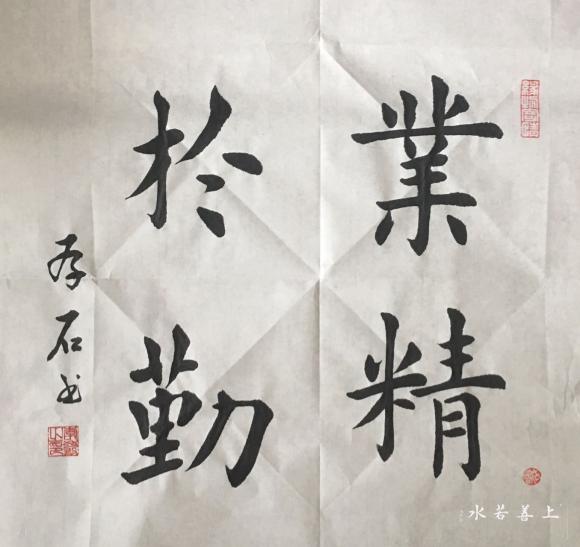 業精
於勤
存石书
上善若水